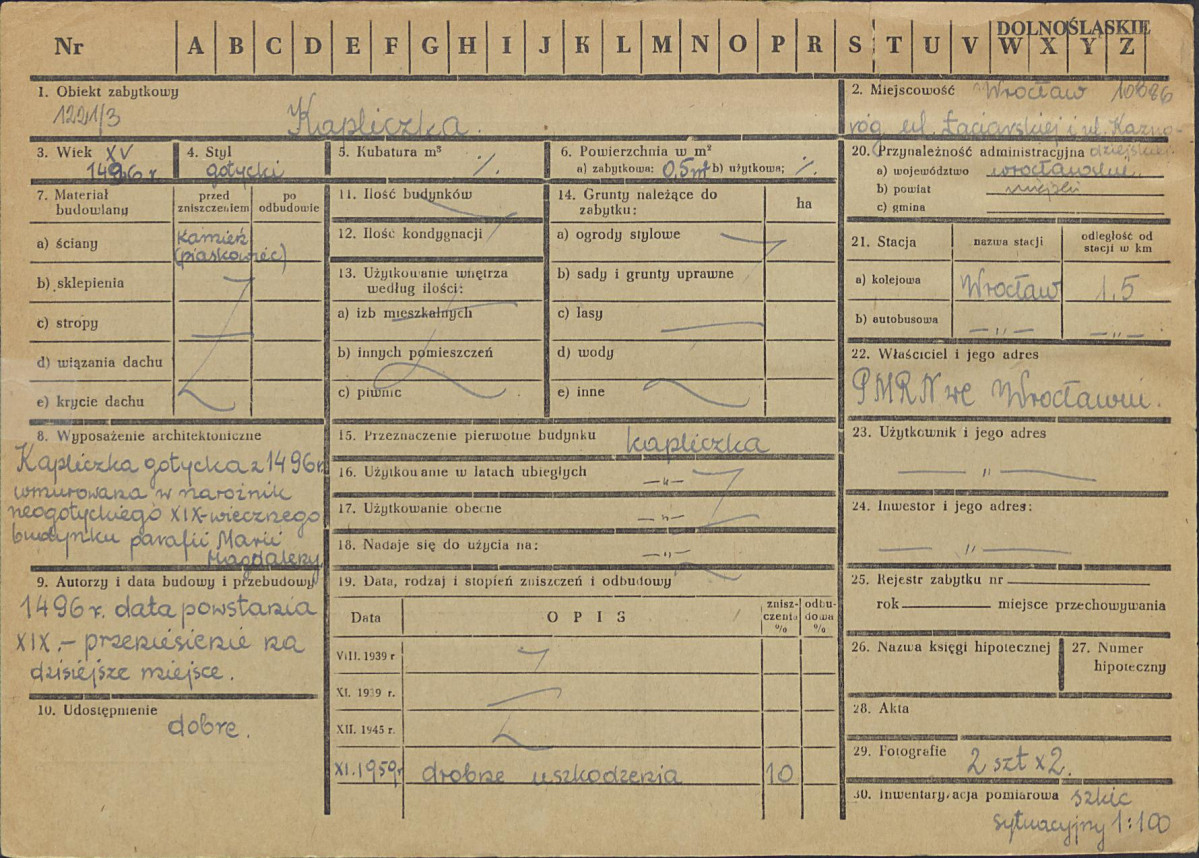 DOLNOŚLĄSKIE
Nr A B C D E F G H I J K L M N O P R S T U V W X Y Z
1. Obiekt zabytkowy
1221/3
Kapliczka.
2. Miejscowość Wrocław 10686
róg ul. Łaciarskiej i ul. Kazno-
dziejskiej
3. Wiek XV
1496 r.
4. Styl
gotycki
5. Kubatura m³
·/.
6. Powierzchnia w m²
a) zabytkowa: 0,5 m² b) użytkowa; ·/.
20. Przynależność administracyjna
a) województwo wrocławskie
b) powiat miejski
c) gmina
7. Materiał budowlany
przed zniszczeniem
po odbudowie
a) ściany
kamień
(piaskowiec)
b) sklepienia
c) stropy
d) wiązania dachu
e) krycie dachu
11. Ilość budynków
12. Ilość kondygnacji
13. Użytkowanie wnętrza
według ilości:
a) izb mieszkalnych
b) innych pomieszczeń
c) piwnic
14. Grunty należące do
zabytku:
ha
a) ogrody stylowe
b) sady i grunty uprawne
c) lasy
d) wody
e) inne
21. Stacja
nazwa stacji
odległość od
stacji w km
a) kolejowa Wrocław 1,5
b) autobusowa —„— —„—
22. Właściciel i jego adres
PMRN we Wrocławiu.
8. Wyposażenie architektoniczne
Kapliczka gotycka z 1496 r.
wmurowana w narożnik
neogotyckiego XIX-wiecznego
budynku parafii Marii
Magdaleny
15. Przeznaczenie pierwotne budynku kapliczka
16. Użytkowanie w latach ubiegłych —„—
17. Użytkowanie obecne —„—
18. Nadaje się do użycia na: —„—
23. Użytkownik i jego adres
—„—
24. Inwestor i jego adres:
—„—
9. Autorzy i data budowy i przebudowy
1496 r. data powstania
XIX.- przeniesienie na
dzisiejsze miejsce.
10. Udostępnienie
dobre.
19. Data, rodzaj i stopień zniszczeń i odbudowy
Data
O P I S
znisz-
czenia
%
odbu-
dowa
%
VIII. 1939 r
XI. 1939 r.
XII. 1945 r.
XI. 1959 r drobne uszkodzenia 10
25. Rejestr zabytku nr
rok miejsce przechowywania
26. Nazwa księgi hipotecznej
27. Numer
hipoteczny
28. Akta
29. Fotografie 2 szt x2.
30. Inwentaryzacja pomiarowa szkic
sytuacyjny 1:100